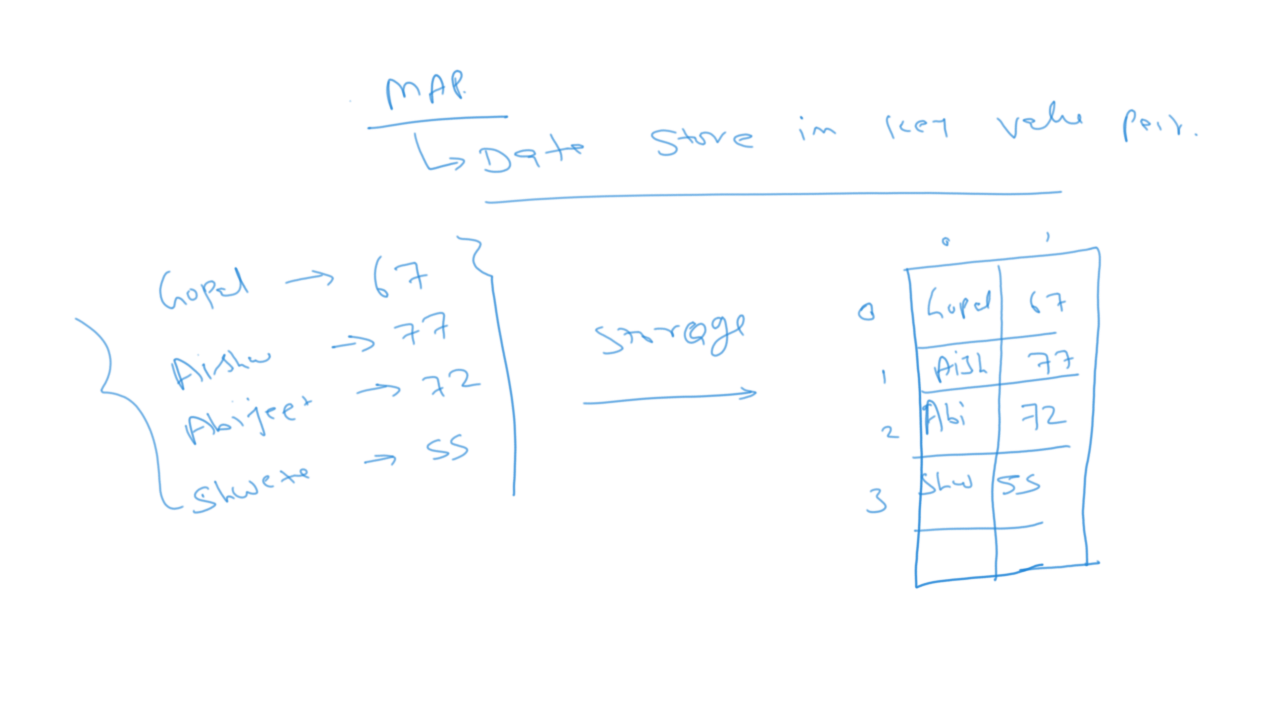 MAP.
↳ Data store in key value pair.
Gopal → 67
Aishw → 77
Abijeet → 72
Shweta → 55
storage
0 1
0 Gopal 67
1 Aish 77
2 Abi 72
3 Shw 55